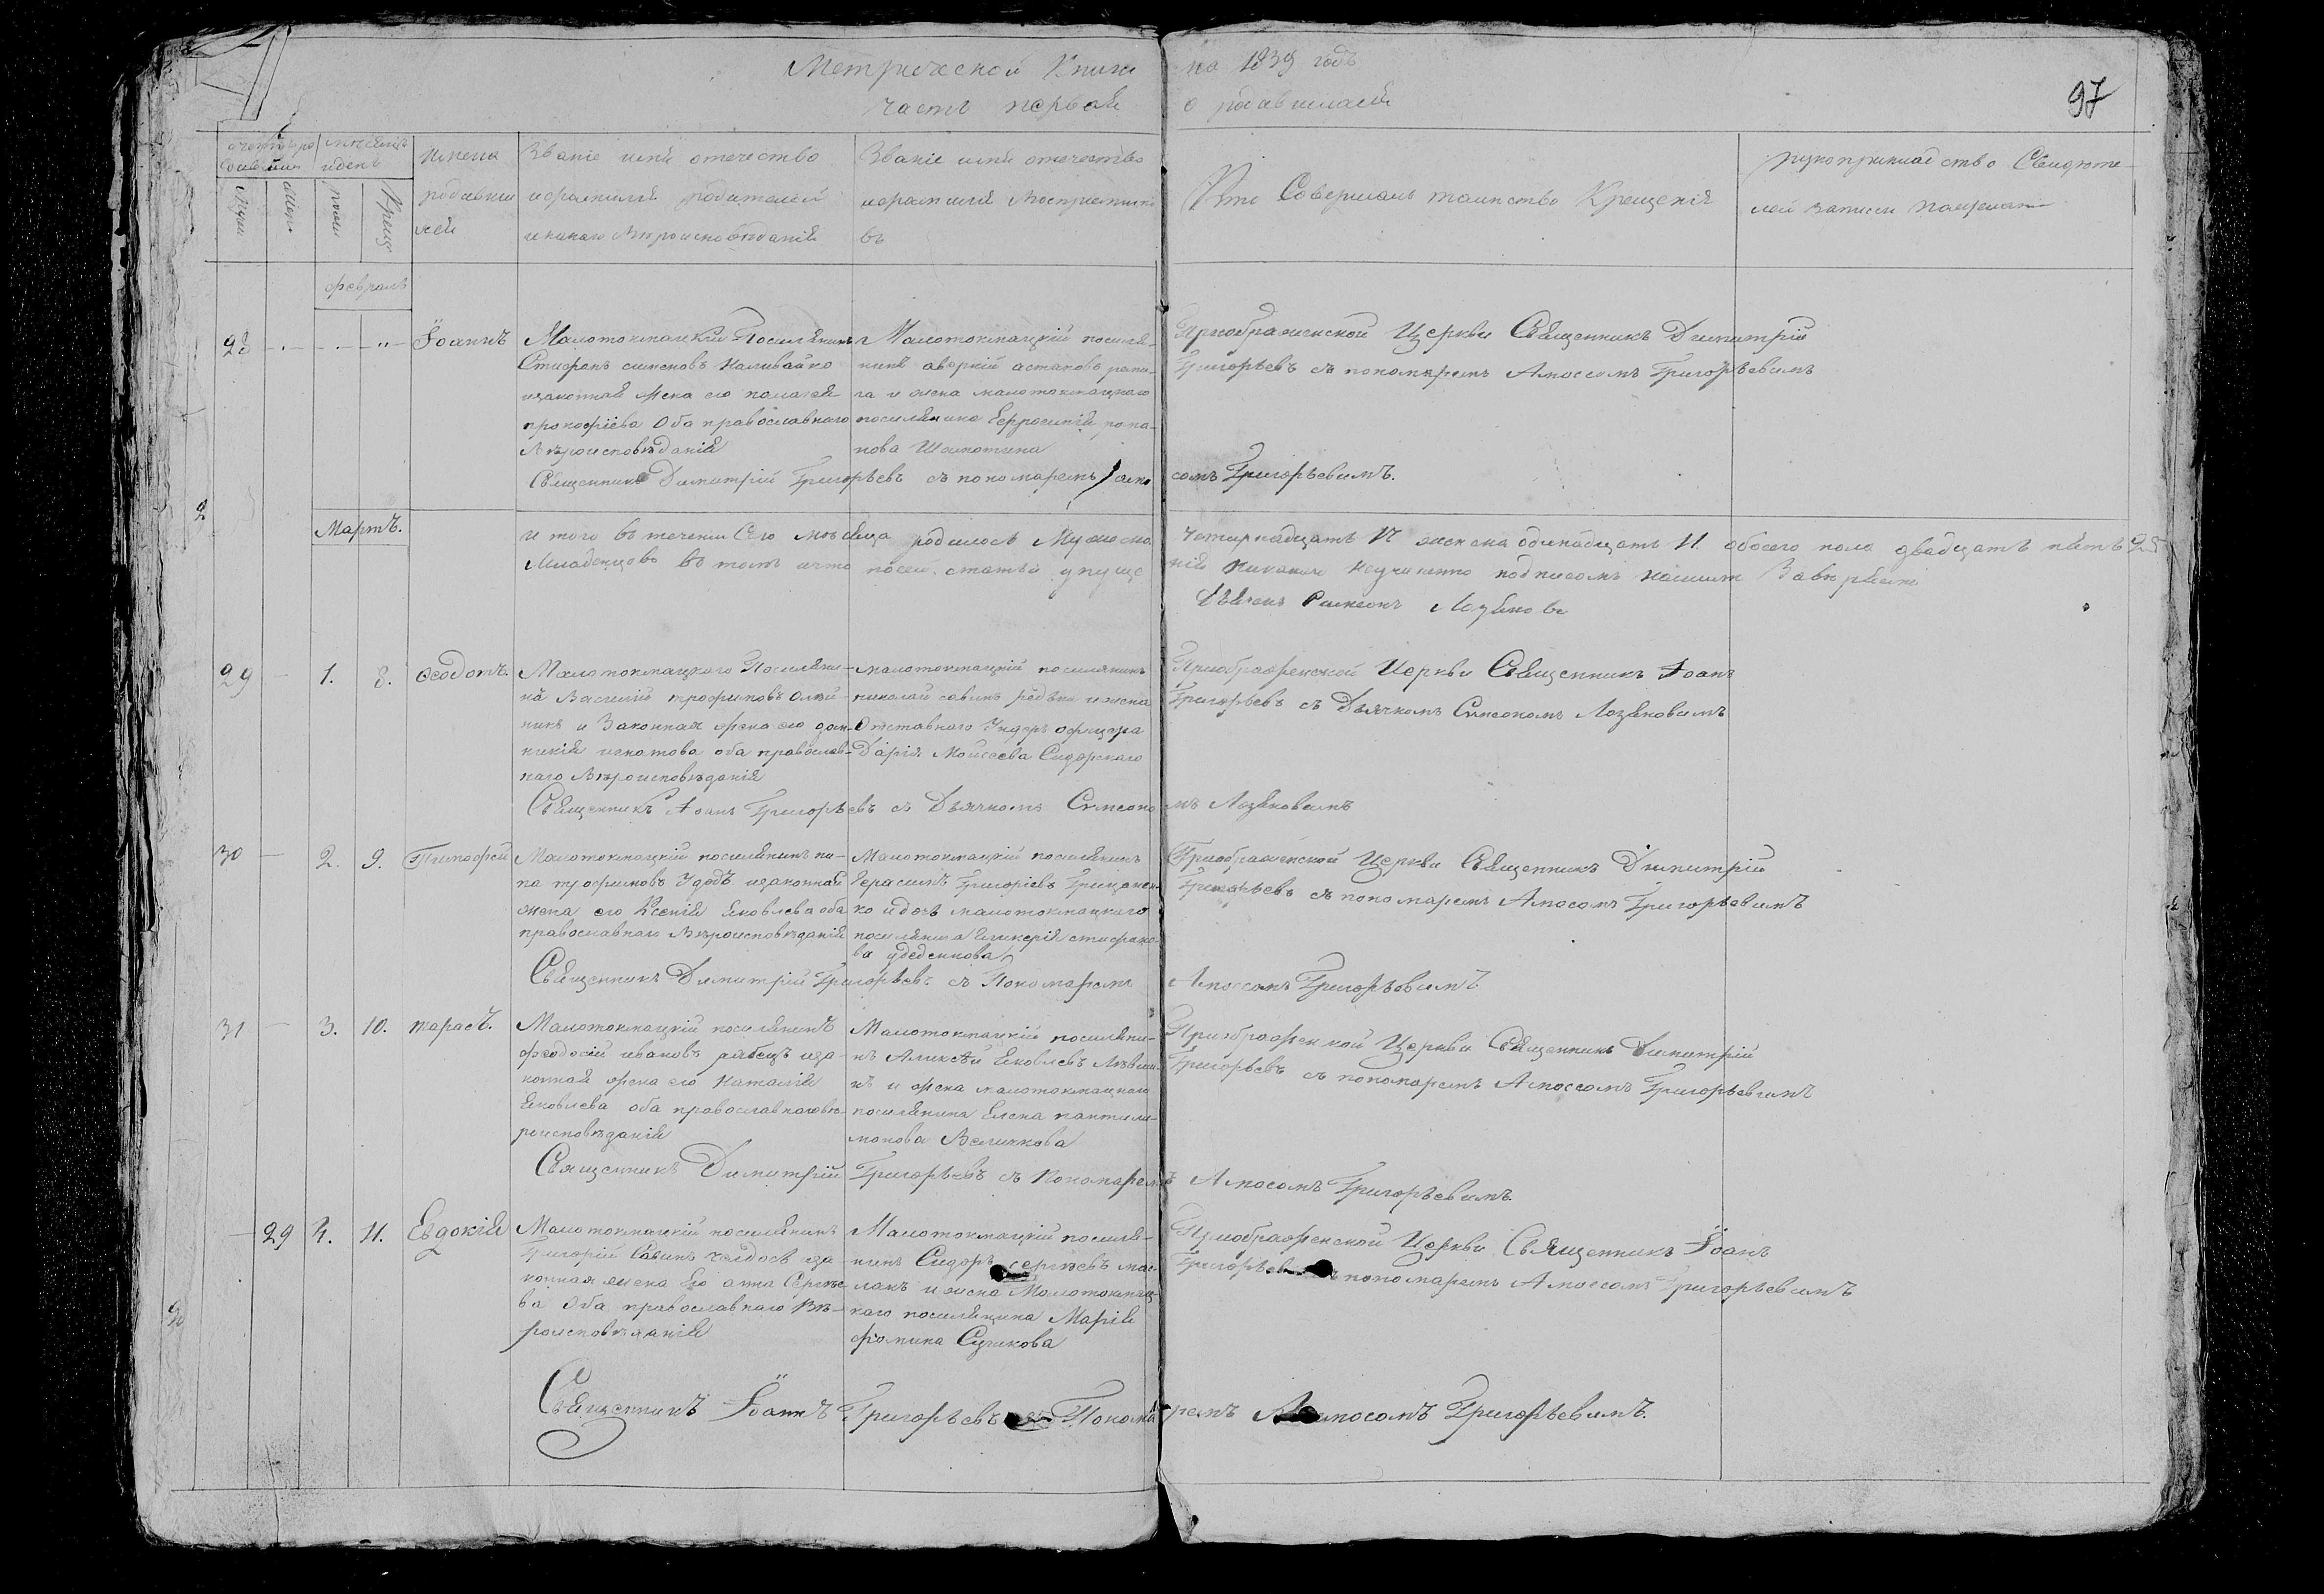 Метрической Книги на 1839 годъ
97
часть первая о родившихся
Имена родивши хся
Званіе имя отечество и фамилія родителей и какаго Вѣроисповѣданія
Званіе имя отечество и фамилія Воспріемнико въ
Кто Совершалъ таинство Крещенія
рукоприкладство Свидѣте- лей записи
февраль
28 Іоаннъ
Малотокмацкій Поселянинъ
Стифанъ симоновъ Наливайко
изаконная жена его палагея
прокофіева Оба православнаго
Вѣроисповѣданія
Малотокмацкій поселя-
нинъ аверкій астаховъ
га и жена малотокмацкаго
поселянина Ефросинія рома-
нова
Приображенской Церкви Священникъ Димитрій
Григорьевъ съ пономаремъ Амоссомъ Григорьевимъ
Священникъ Димитрій Григорьевъ съ пономаремъ Амо сомъ Григорьевимъ.
Мартъ.
и того въ теченіи Сего мѣсяца родилось Мужеска четирнадцать И женска одинадцать И обоего пола двадцать пять 25
Младенцовъ въ томъ что посей статьи упуще нія никакои неучинено подписомъ нашимъ Завѣряемъ
Симеонъ Лозяновъ
29 1. 8. Ѳеодотъ.
Малотокмацкаго Поселяни-
на Василій трофимовъ Олей-
никъ и Законная жена его дом-
никія изотова оба православ-
наго Вѣроисповѣданія
малотокмацкій поселянинъ
николай савинъ рѣдька и жена
Отставнаго Ундеръ офицера
Дарія Моисеева Сидорскаго
Приображенской Церкви Священникъ Іоанъ
Григорьевъ съ Дьячкомъ Симеономъ Лозяновимъ
Священникъ Іоанъ Григорьевъ съ Дьячкомъ Симеоно мъ Лозяновимъ
30 2. 9. Тимофей
Малотокмацкій поселянинъ по-
па трофимовъ Удодъ изаконная
жена его Ксенія Яковлева оба
православнаго Вѣроисповѣданія
Малотокмацкій поселянинъ
Герасимъ Григоріевъ Грицанен-
ко и дочь малотокмацкаго
поселянина Гликерія стифано-
ва удоденкова
Приображенской Церкви Священникъ Димитрій
Григорьевъ съ пономаремъ Амосомъ Григорьевимъ
Священникъ Димитрій Григорьевъ съ Пономаремъ Амоссомъ Григорьевимъ
31 3. 10. тарасъ.
Малотокмацкій поселянинъ
феодосій ивановъ рябецъ иза-
конная жена его Наталія
Яковлева оба православнаго вѣ-
роисповѣданія
Малотокмацкій поселяни-
нъ Аликсѣй Яковлевъ
къ и жена малотокмацкаго
поселянина Елена пантили-
монова Величкова
Приображенской Церкви Священникъ Димитрій
Григорьевъ съ пономаремъ Амоссомъ Григорьевимъ
Священникъ Димитрій Григорьевъ съ пономарем ъ Амосомъ Григорьевимъ.
29 4. 11. Евдокія
Малотокмацкій поселянинъ
Григорій Савинъ иза-
конная жена Его анна Сергѣе
ва Оба православнаго Вѣ-
роисповѣданія
Малотокмацкій поселя-
нинъ Сидоръ сергѣевъ мас-
лакъ и жена Малотокмац-
каго поселянина Марія
фомина Сушкова
Приображенской Церкви Священникъ Іоанъ
Григорьев пономаремъ Амоссомъ Григорьевимъ
Священникъ Іоаннъ Григорьевъ съ Понома ремъ Амосомъ Григорьевимъ.